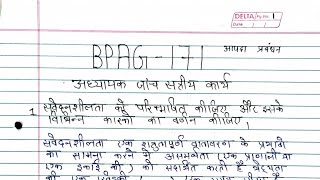 DELTA Pg No. 1
BPAG-171
आपदा प्रबंधन
अध्यापक जांच सत्रीय कार्य
1 संवेदनशीलता को परिभाषित कीजिए और इसके
विभिन्न कारकों का वर्णन कीजिए।
संवेदनशीलता एक शत्रुतापूर्ण वातावरण के प्रभावों
का सामना करने में असमर्थता (एक प्रणाली या
एक इकाई की) को संदर्भित करती है।
की एक